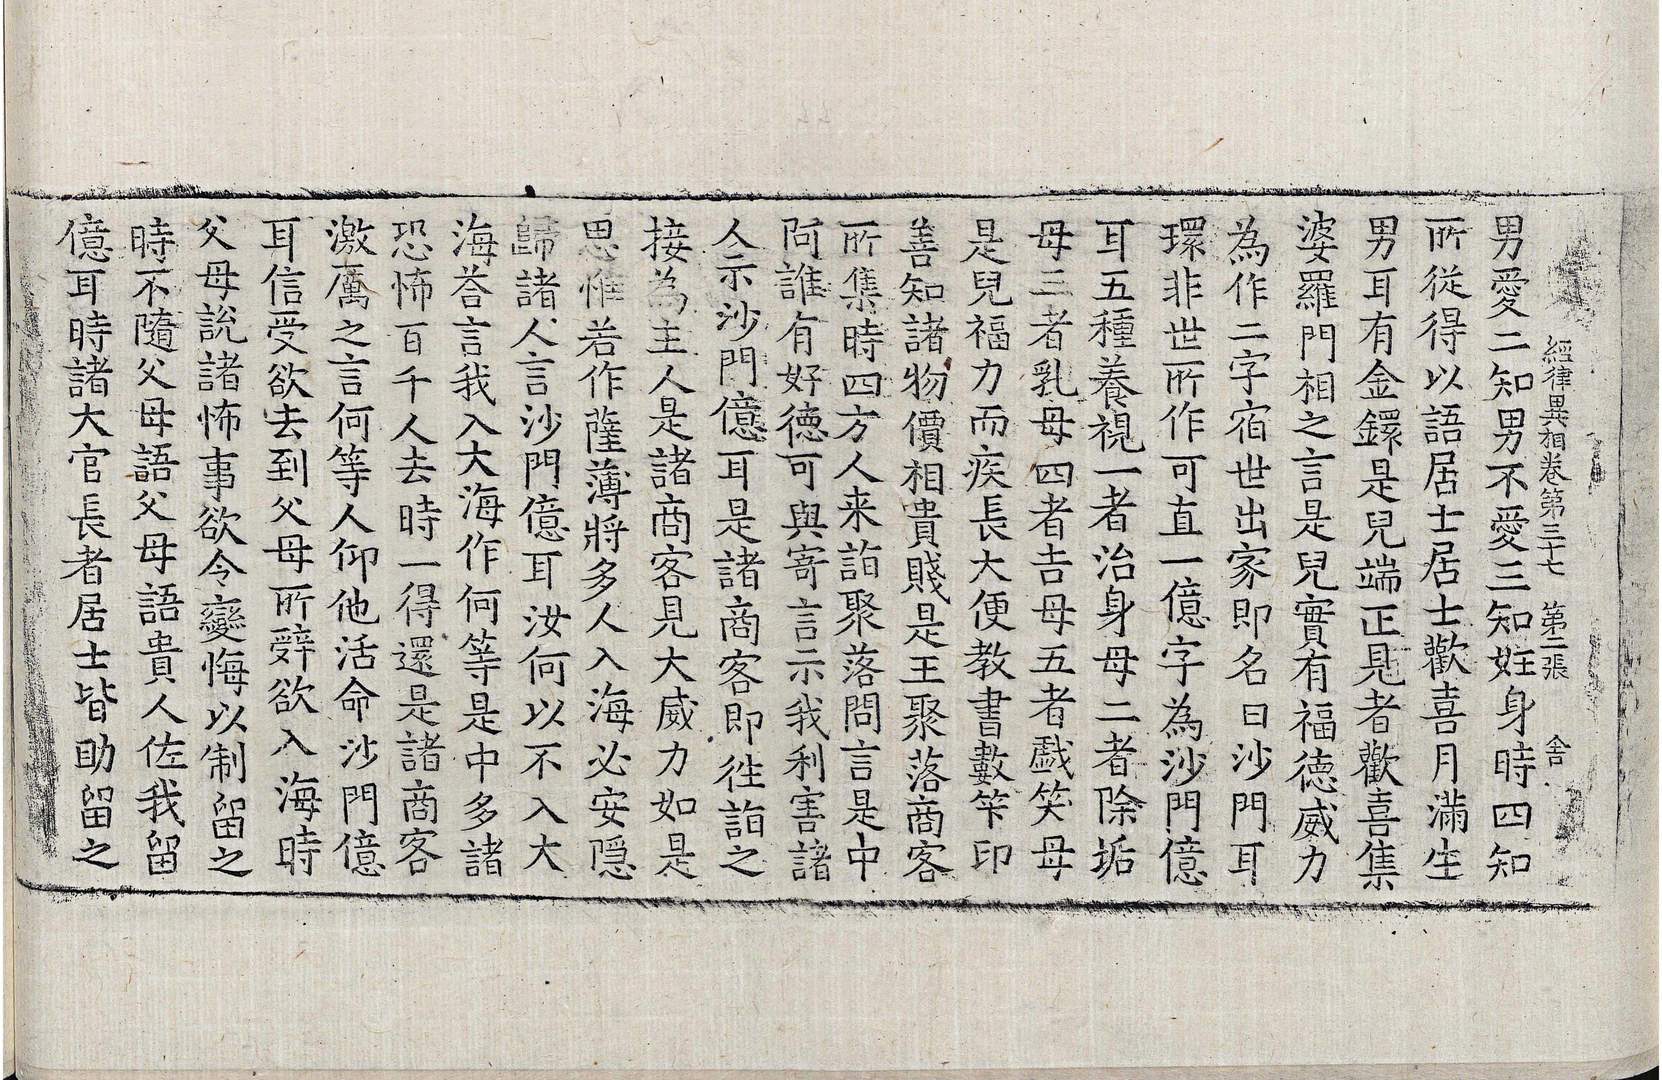 經律異相卷第三十七 第二張 舍
男愛二知男不愛三知妊身時四知
所從得以語居士居士歡喜月滿生
男耳有金鐶是兒端正見者歡喜集
婆羅門相之言是兒實有福德威力
為作二字宿世出家即名曰沙門耳
環非世所作可直一億字為沙門億
耳五種養視一者治身母二者除垢
母三者乳母四者吉母五者戱笑母
是兒福力而疾長大便教書數笇印
善知諸物價相貴賤是王聚落商客
所集時四方人来詣聚落問言是中
阿誰有好德可與寄言示我利害諸
人示沙門億耳是諸商客即徃詣之
接為主人是諸商客見大威力如是
思惟若作薩薄將多人入海必安隱
歸諸人言沙門億耳汝何以不入大
海荅言我入大海作何等是中多諸
恐怖百千人去時一得還是諸商客
激厲之言何等人仰他活命沙門億
耳信受欲去到父母所辝欲入海時
父母説諸怖事欲令變悔以制留之
時不隨父母語父母語貴人佐我留
億耳時諸大官長者居士皆助留之